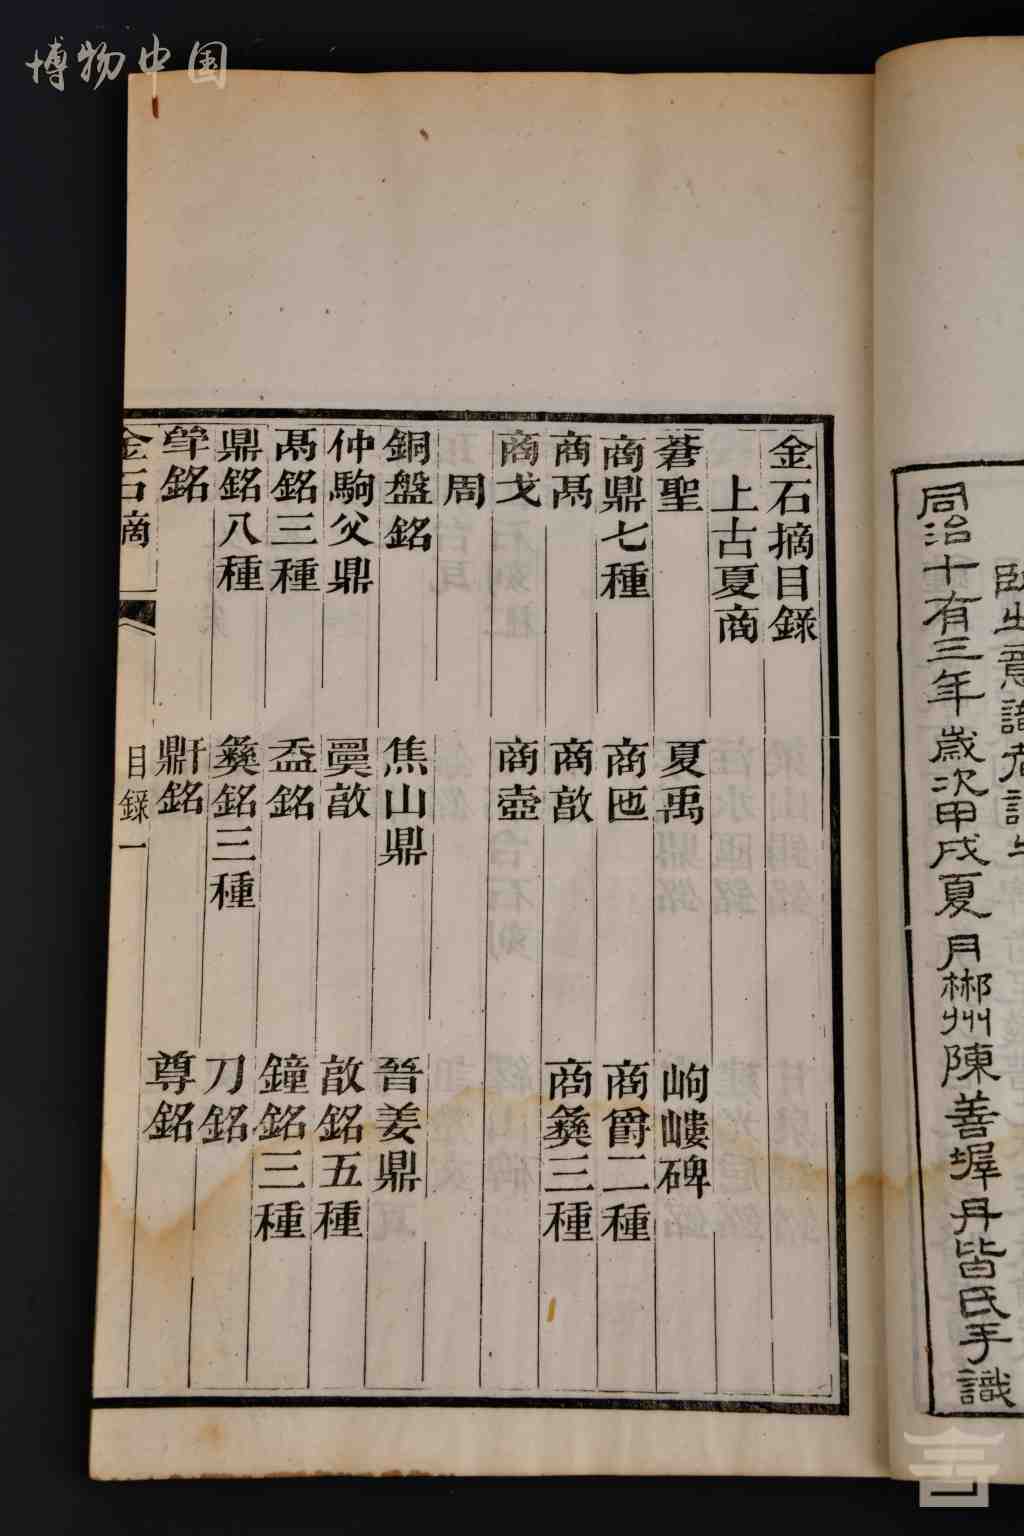 博物中国
同治十有三年歲次甲戌夏月郴州陳善墀丹皆氏手識
金石摘目錄
上古夏商
蒼聖 夏禹 岣嶁碑
商鼎七種 商匜 商爵二種
商鬲 商敨 商彝三種
商戈 商壺
周
銅盤銘 焦山鼎 晉姜鼎
仲駒父鼎 敨 敨銘五種
鬲銘三種 盉銘 鐘銘三種
鼎銘八種 彝銘三種 刀銘
銘 銘 尊銘
金石摘一 目錄一